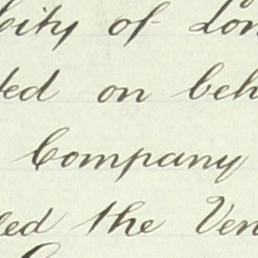 City of Lon
ted on beh
Company
led the Ven